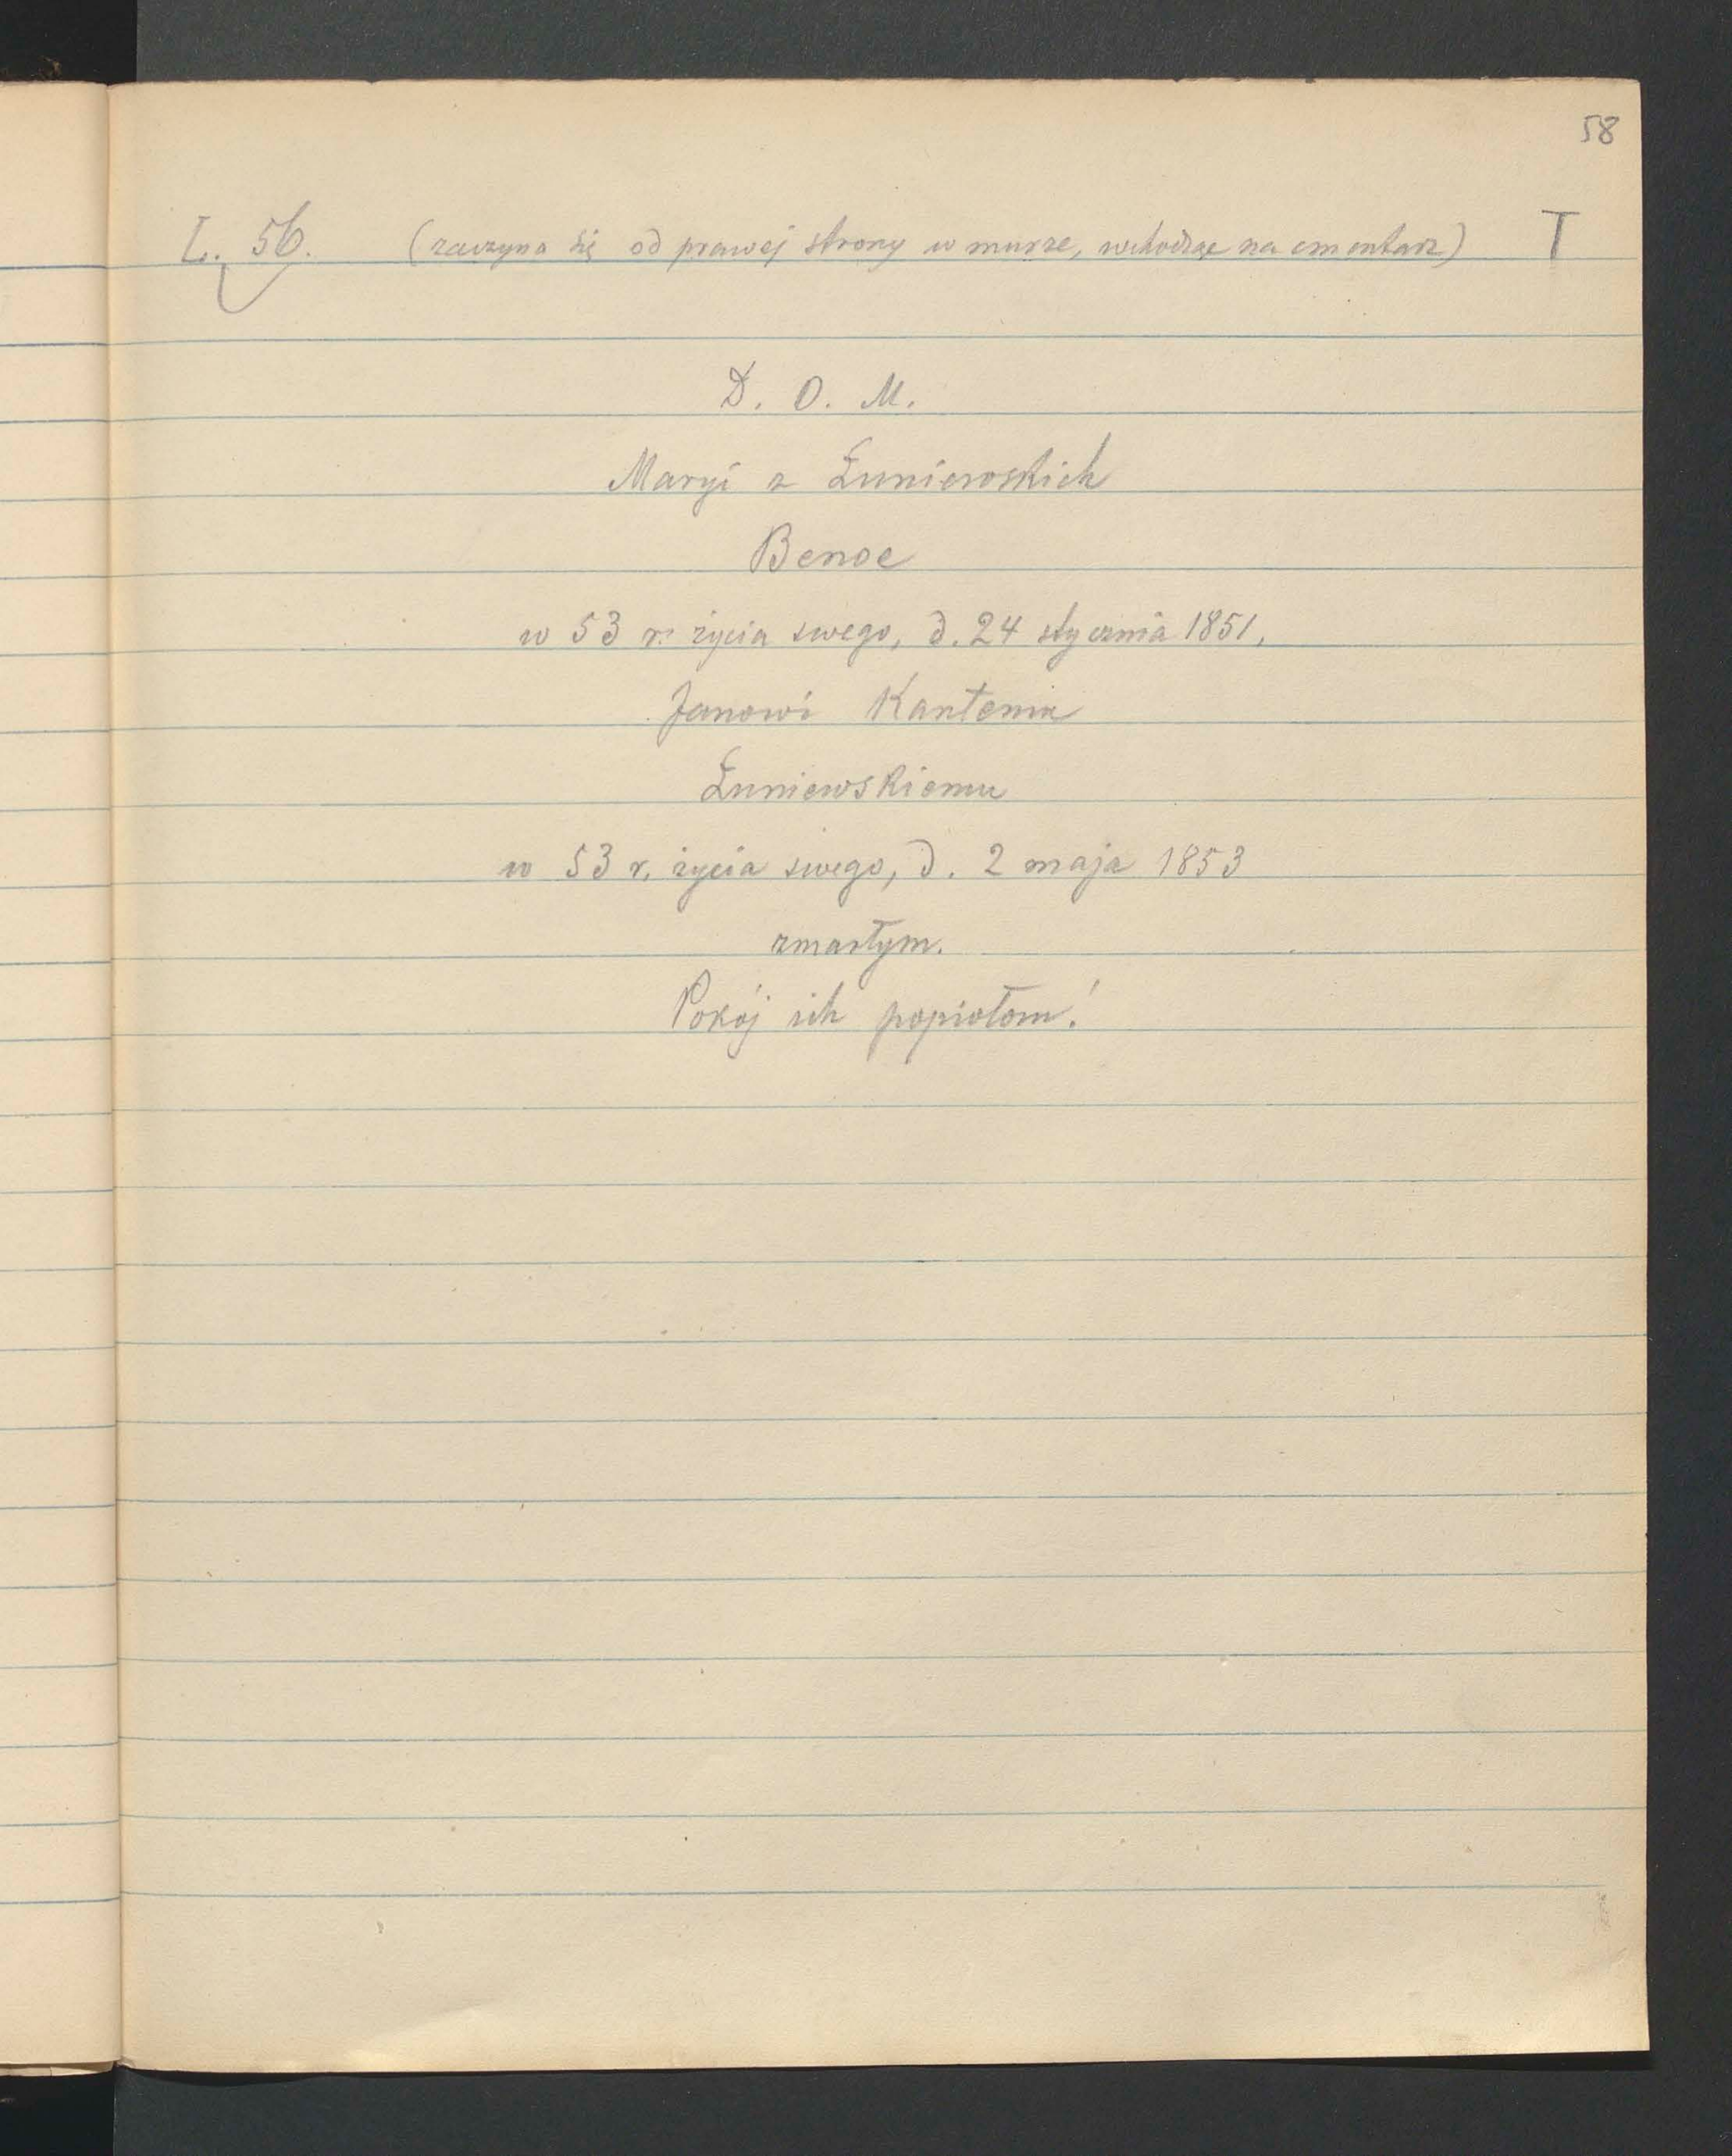 58
L. 56. (zaczyna się od prawej strony w murze, wchodząc na cmentarz) T
D. O. M.
Maryi z Żuniewskich
Benoe
w 53 r. życia swego, d. 24 stycznia 1851,
Janowi Kantemu
Żuniewskiemu
w 53 r. życia swego, d. 2 maja 1853
zmarłym.
Pokój ich popiołom!